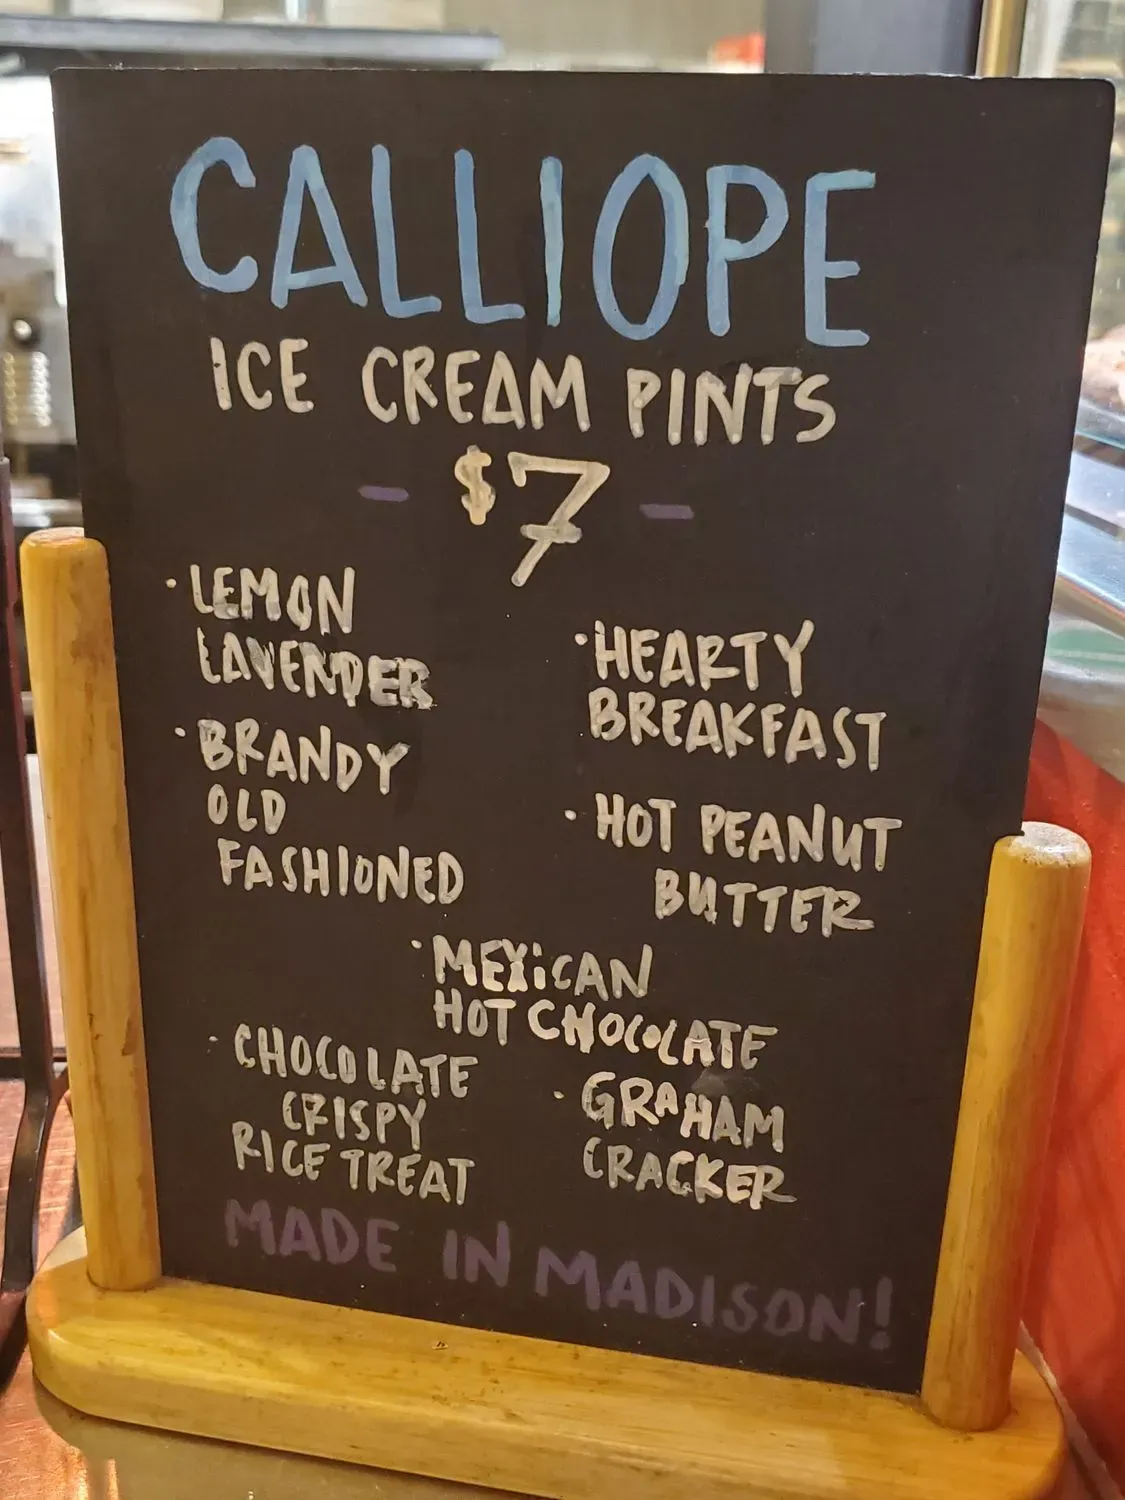 CALLIOPE
ICE CREAM PINTS
- $7 -
· LEMON
LAVENDER
· BRANDY
OLD
FASHIONED
· HEARTY
BREAKFAST
· HOT PEANUT
BUTTER
· MEXiCAN
HOT CHOCOLATE
· CHOCOLATE
CRISPY
RICE TREAT
· GRAHAM
CRACKER
MADE IN MADISON!